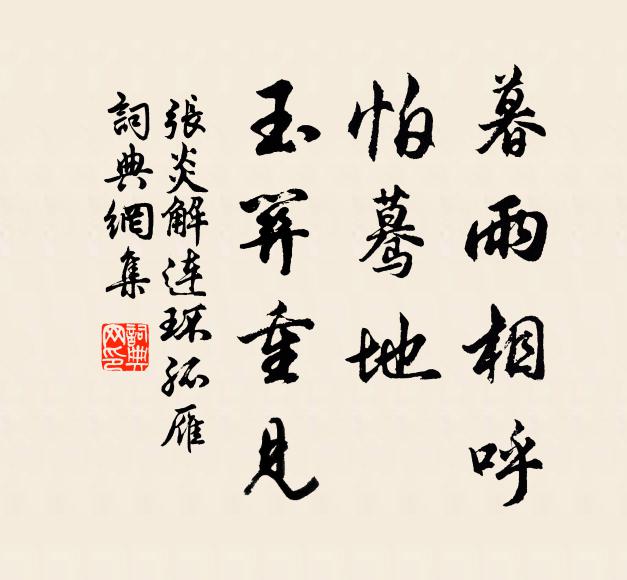 暮雨相呼
怕驀地
玉關重見
張炎解連環孤雁
詞典網集
詞典
网印